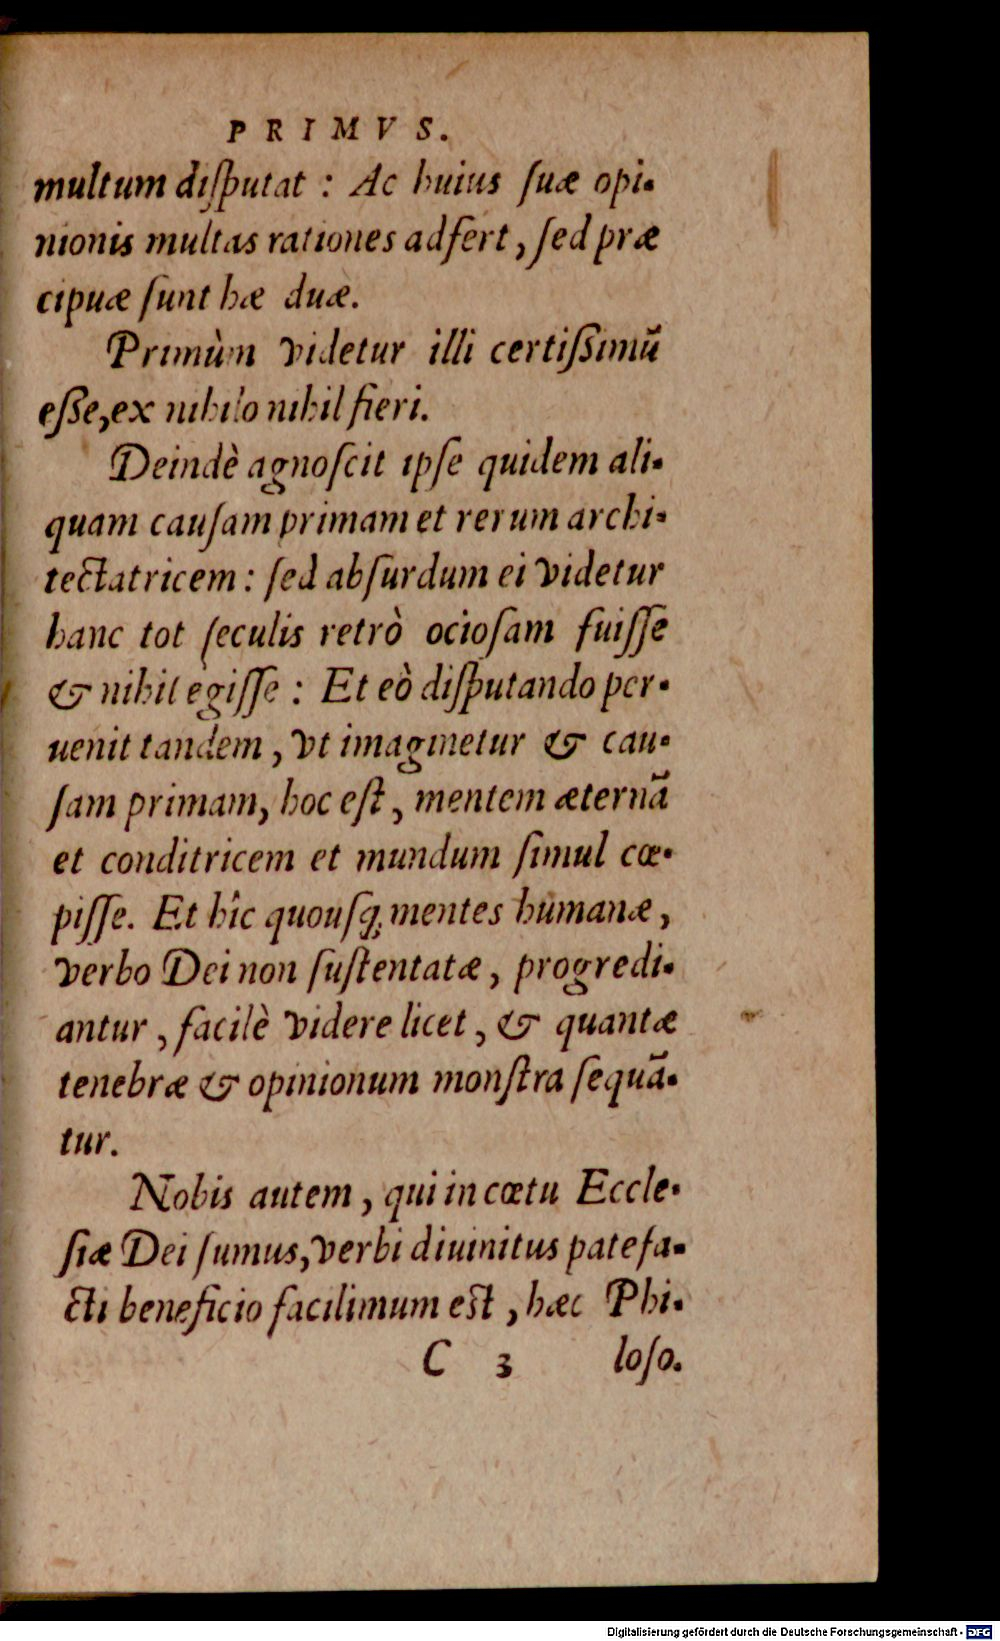 PRIMVS.
multum diſputat : Ac huius ſuæ opi-
nionis multas rationes adfert, ſed præ
cipuæ ſunt hæ duæ.
Primùm videtur illi certiſsimū
eſse, ex nihilo nihil fieri.
Deindè agnoſcit ipſe quidem ali-
quam cauſam primam et rerum archi-
tectatricem : ſed abſurdum ei videtur
hanc tot ſeculis retrò ocioſam fuiſſe
& nihil egiſſe : Et eò diſputando per-
uenit tandem, vt imaginetur & cau-
ſam primam, hoc eſt, mentem æternā
et conditricem et mundum ſimul cœ-
piſſe. Et hîc quouſq; mentes humanæ,
verbo Dei non ſuſtentatæ, progredi-
antur, facilè videre licet, & quantæ
tenebræ & opinionum monſtra ſequā-
tur.
Nobis autem, qui in cœtu Eccle-
ſiæ Dei ſumus, verbi diuinitus patefa-
cti beneficio facilimum eſt, hæc Phi-
C 3 loſo-
Digitalisierung gefördert durch die Deutsche Forschungsgemeinschaft - DFG